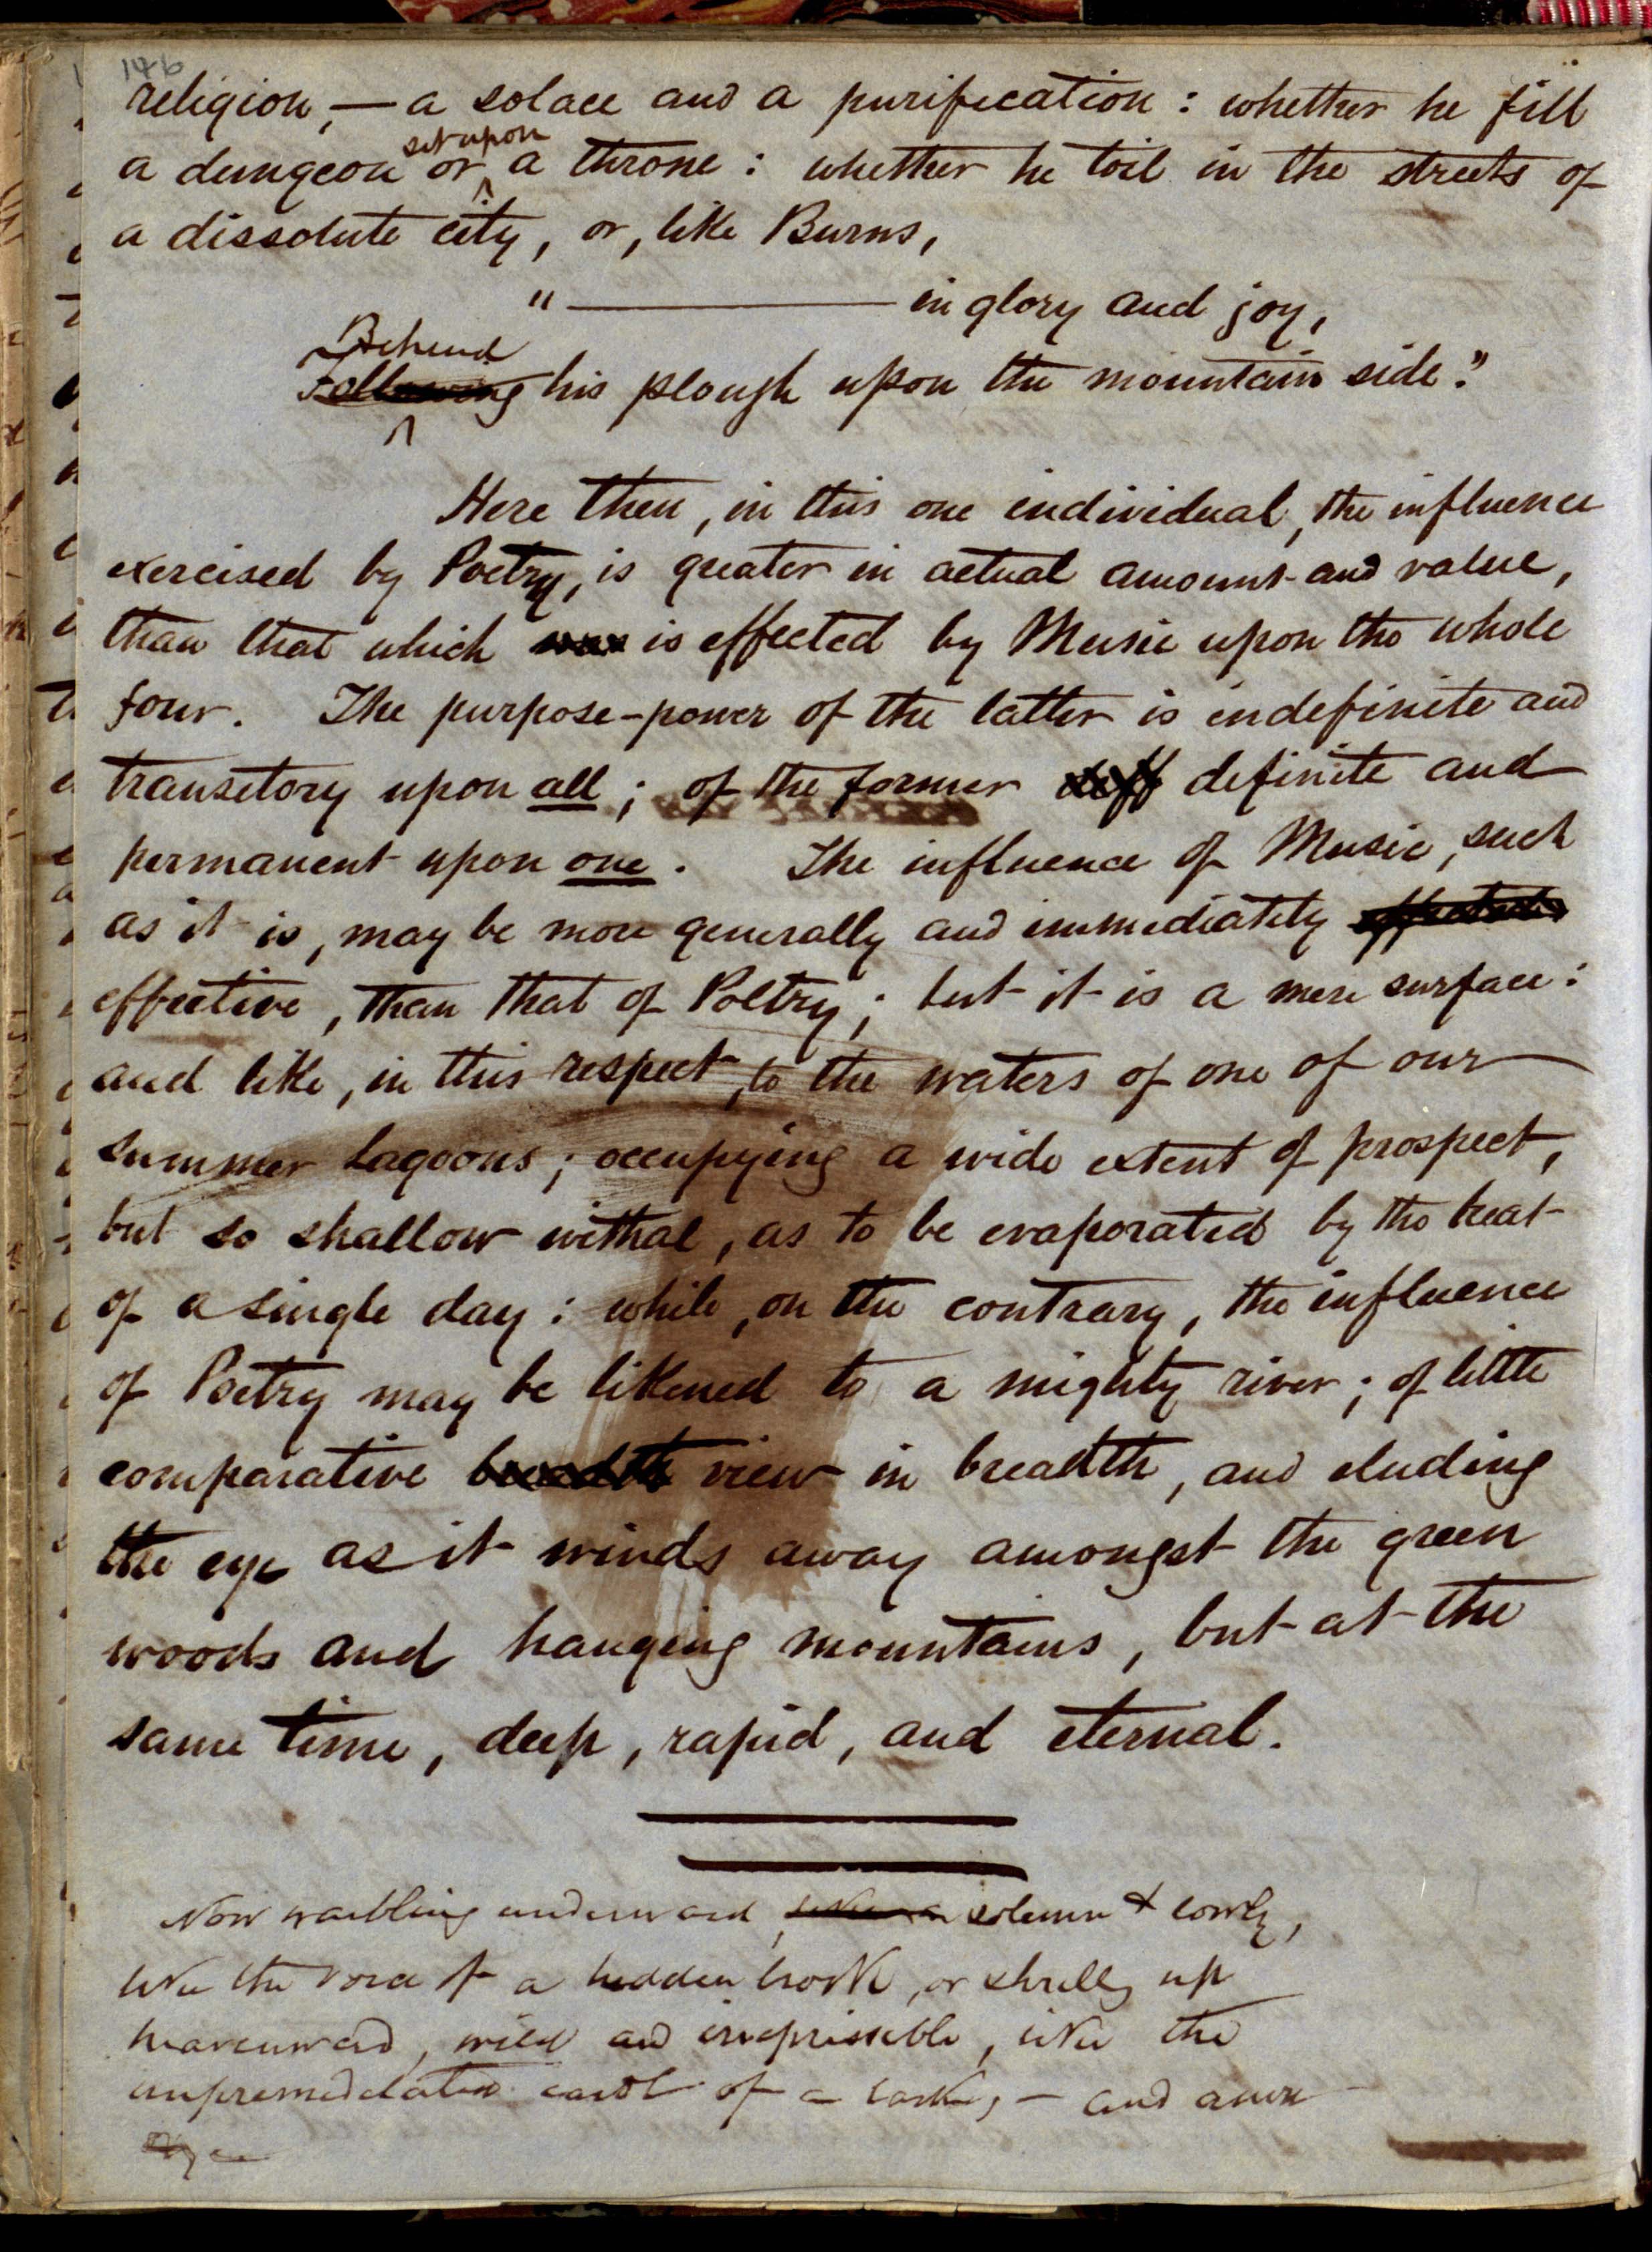 146
religion, — a solace and a purification : whether he fill
set upon
a dungeon or a throne : whether he toil in the streets of
a dissolute city, or, like Burns,
" ——— in glory and joy,
Behind
Following his plough upon the mountain side."
Here then, in this one individual, the influence
exercised by Poetry, is greater in actual amount and value,
than that which was is effected by Music upon the whole
four. The purpose-power of the latter is indefinite and
transetory upon all ; of the former deff definite and
permanent upon one. The influence of Music, such
as it is, may be more generally and immediately
effective, than that of Poetry ; but it is a mere surface :
and like, in this respect, to the waters of one of our
summer lagoons ; occupying a wide extent of prospect,
but so shallow withal, as to be evaporated by the heat
of a single day : while, on the contrary, the influence
of Poetry may be likened to a mighty river ; of little
comparative breadth view in breadth, and eluding
the eye as it winds away amongst the green
woods and hanging mountains, but at the
same time, deep, rapid, and eternal.
Now warbling underward, like a solemn & lowly,
like the voice of a hidden brook, or shrilly up
heavenward, wild and irrepressible, like the
unpremeditated carol of a lark, — and anon